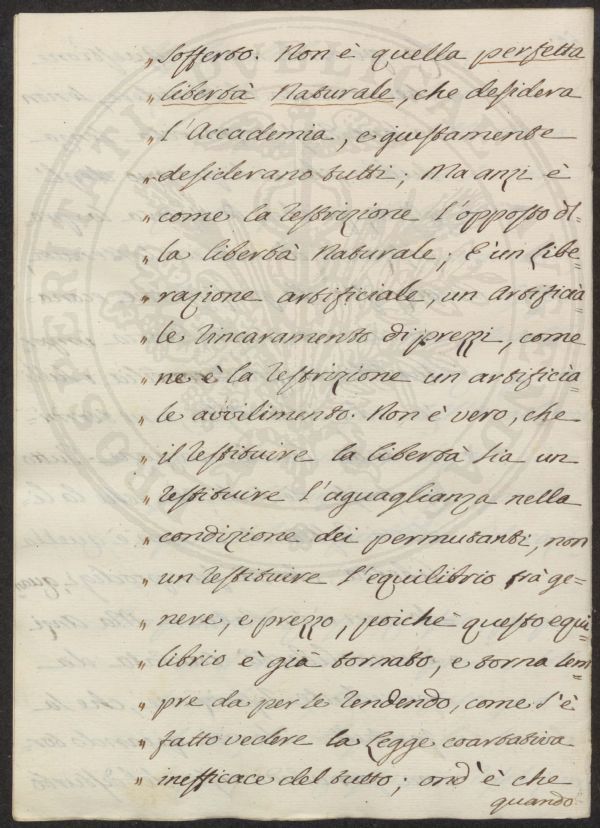 „ sofferto. Non è quella perfetta
„ libertà Naturale, che desidera
„ l'Accademia, e giustamente
„ desiderano tutti; Ma anzi è
„ come la restrizione l'opposto di=
„ la libertà Naturale; E' un libe=
„ razione artificiale, un artificia
„ le rincaramento di prezzi, come
„ ne è la restrizione un artificia=
„ le avvilimento. Non è vero, che
„ il restituire la libertà sia un
„ restituire l'aguaglianza nella
„ condizione dei permutanti, non
„ un restituire l'equilibrio trà ge=
„ nere, e prezzo, poichè questo equi
„ librio è già tornato, e torna sem
„ pre da per se rendendo, come s'è
„ fatto vedere la Legge coartativa
„ inefficace del tutto; ond'è che
quando